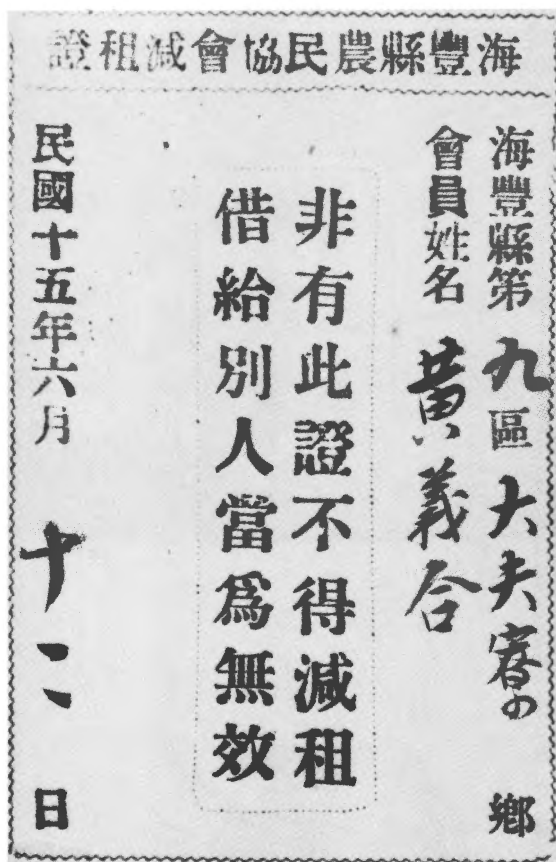 海豐縣農民協會減租證
海豐縣第九區大夫寮鄉
會員姓名 黃義合
非有此證不得減租
借給別人當爲無效
民國十五年六月十二日